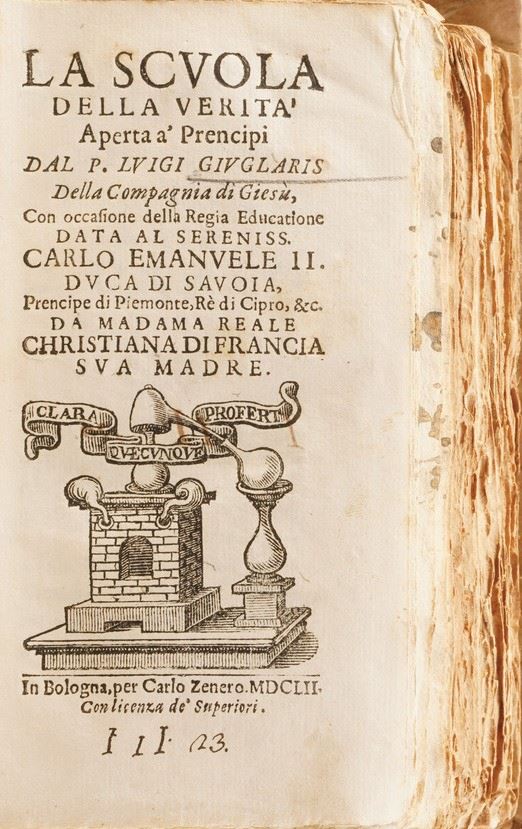 LA SCVOLA
DELLA VERITA'
Aperta a' Prencipi
DAL P. LVIGI GIVGLARIS
Della Compagnia di Giesù,
Con occasione della Regia Educatione
DATA AL SERENISS.
CARLO EMANVELE II.
DVCA DI SAVOIA,
Prencipe di Piemonte, Rè di Cipro, &c.
DA MADAMA REALE
CHRISTIANA DI FRANCIA
SVA MADRE.
CLARA QVÆCVNQVE PROFERT
In Bologna, per Carlo Zenero. MDCLII.
Con licenza de' Superiori.
III. 23.